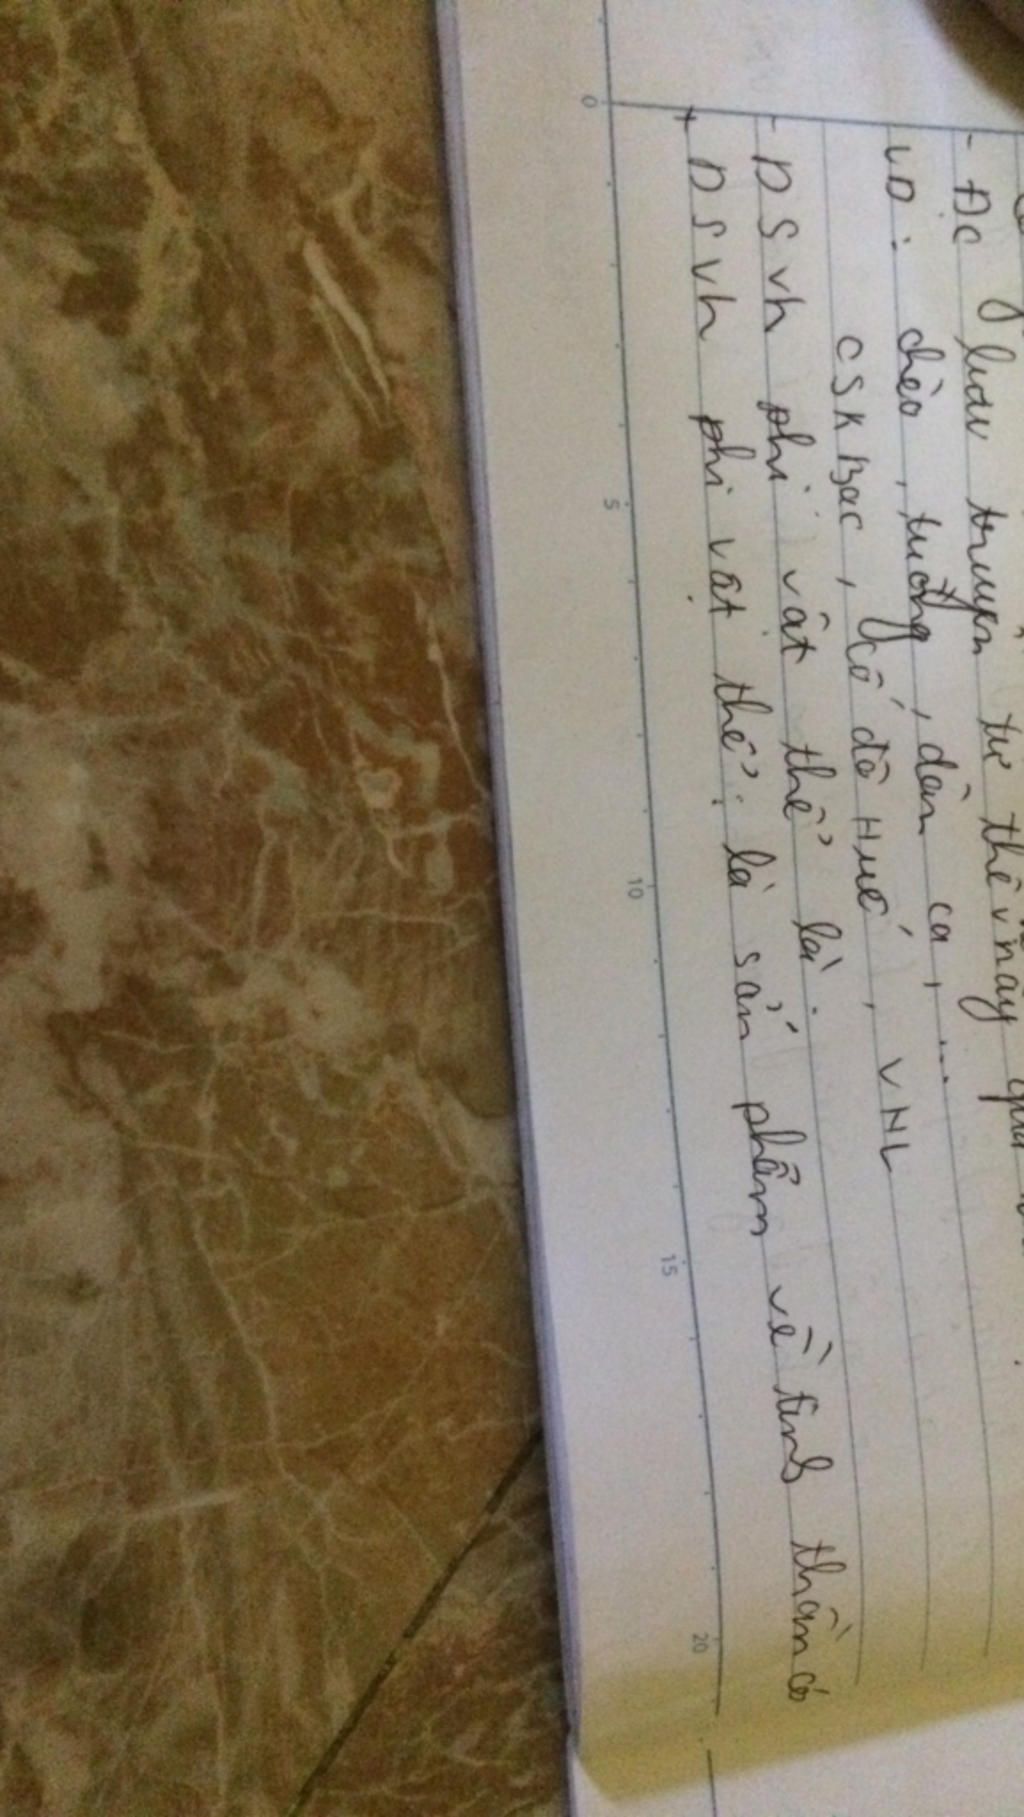 - Đc lưu truyền từ thế này qua
VD: chèo, tuồng, dân ca, ...
CSK Bạc, cố đô Huế, VHL
- DSVh phi vật thể là:
+ DSVh phi vật thể: là sản phẩm về tinh thần có
0 5 10 15 20